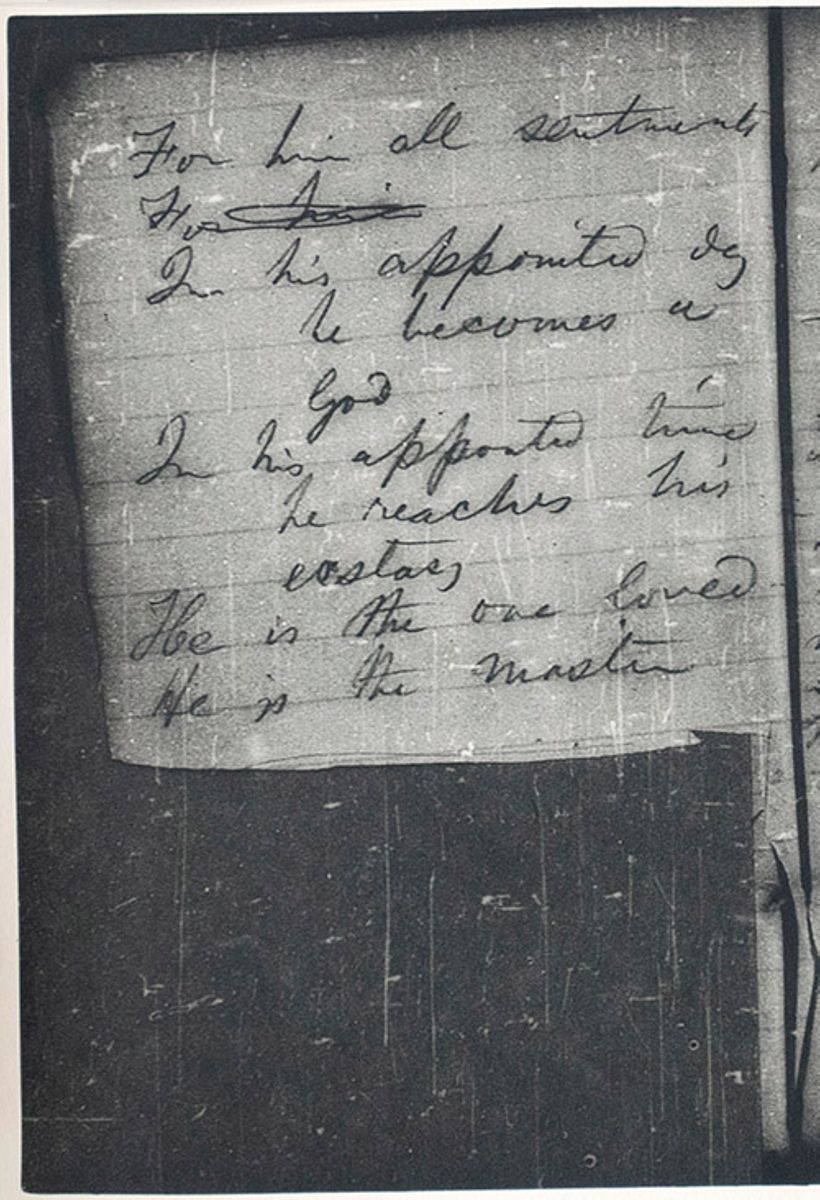 For him all sentiments
For him
In his appointed day
he becomes a
God
In his appointed time
he reaches his
ecstasy
He is the one loved
He is the master